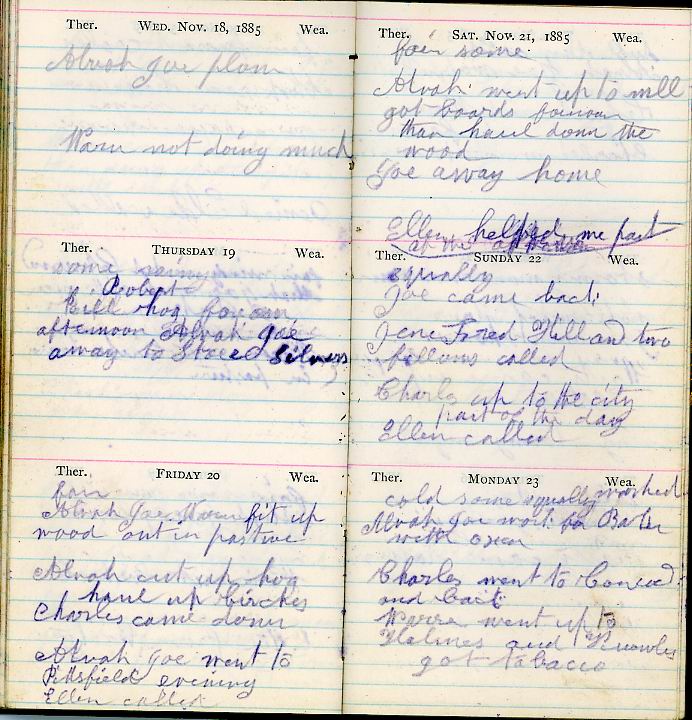 Ther. WED. NOV. 18, 1885 Wea.
Alvah Joe plow
Warn not doing much
Ther. THURSDAY 19 Wea.
some
Robert
kill hog
afternoon Alvah Joe
away to Silvers
Ther. FRIDAY 20 Wea.
fair
Alvah Joe Warn fit up
wood out in pasture
Alvah cut up hog
haul up birches
Charles came down
Alvah Joe went to
Pittsfield evening
Ellen called
Ther. SAT. NOV. 21, 1885 Wea.
fair some
Alvah went up to mill
got boards
than haul down the
wood
Joe away home
Ellen helped me part
at the
Ther. SUNDAY 22 Wea.
squally
Joe came back
Fred Hill and two
fellows called
Charls up to the city
part of the day
Ellen called
Ther. MONDAY 23 Wea.
cold some squally washed
Alvah Joe work for
with oxen
Charles went to Concord
and back
went up to
Holmes and Knowles
got tobacco